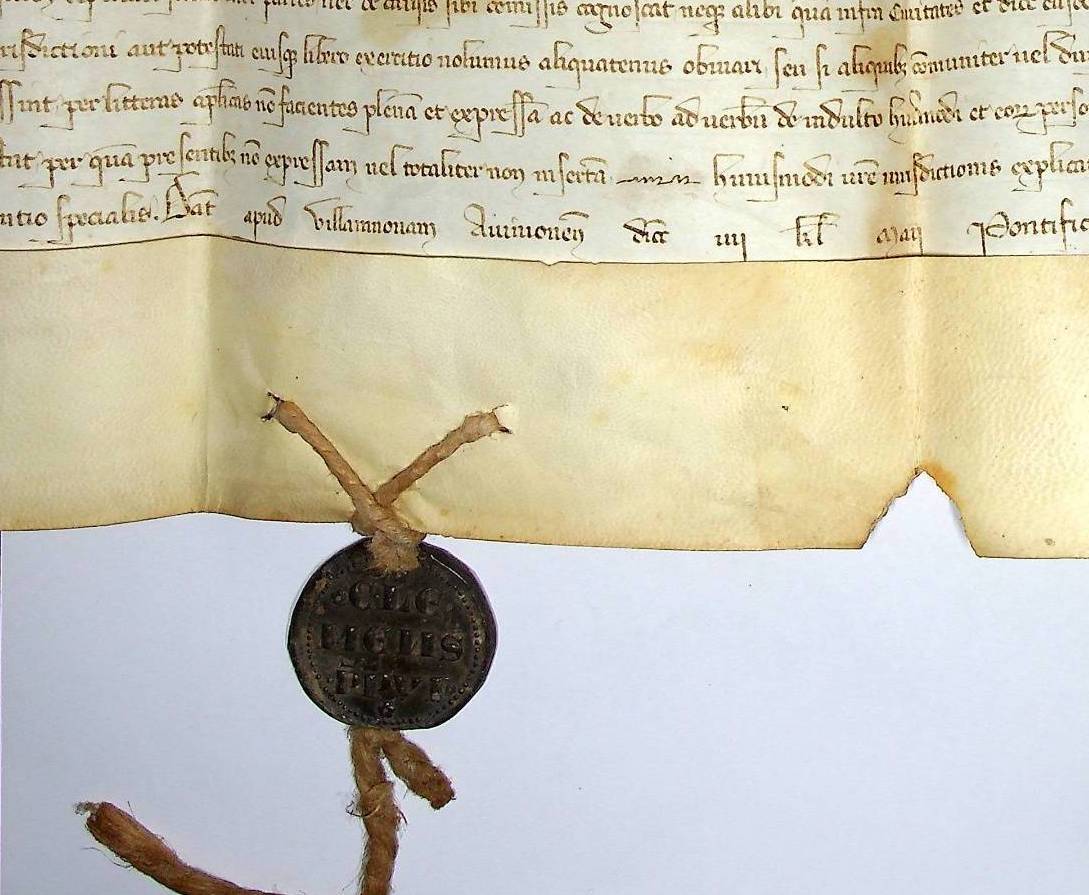 sibi comissis cognoscat neqȝ alibi quā infra Ciuitatē et
risdictioni aut potestati eiusqȝ libero exercitio nolumus aliquatenus obuiari seu si aliquibȝ cōmuniter uel
ssint per litteras aplicas nō facientes plenā et expressā ac de uerbo ad uerbū de indulto huiusmodi et eorꝝ perso
per quā presentibȝ nō expressam uel totaliter non insertā huiusmodi iurisdictionis explica
ntio specialis. Dat apud Villamnouam Auinionen̄ dioc̄ iiij kl̄ Maij Pontific
CLE
MENS
PP VI